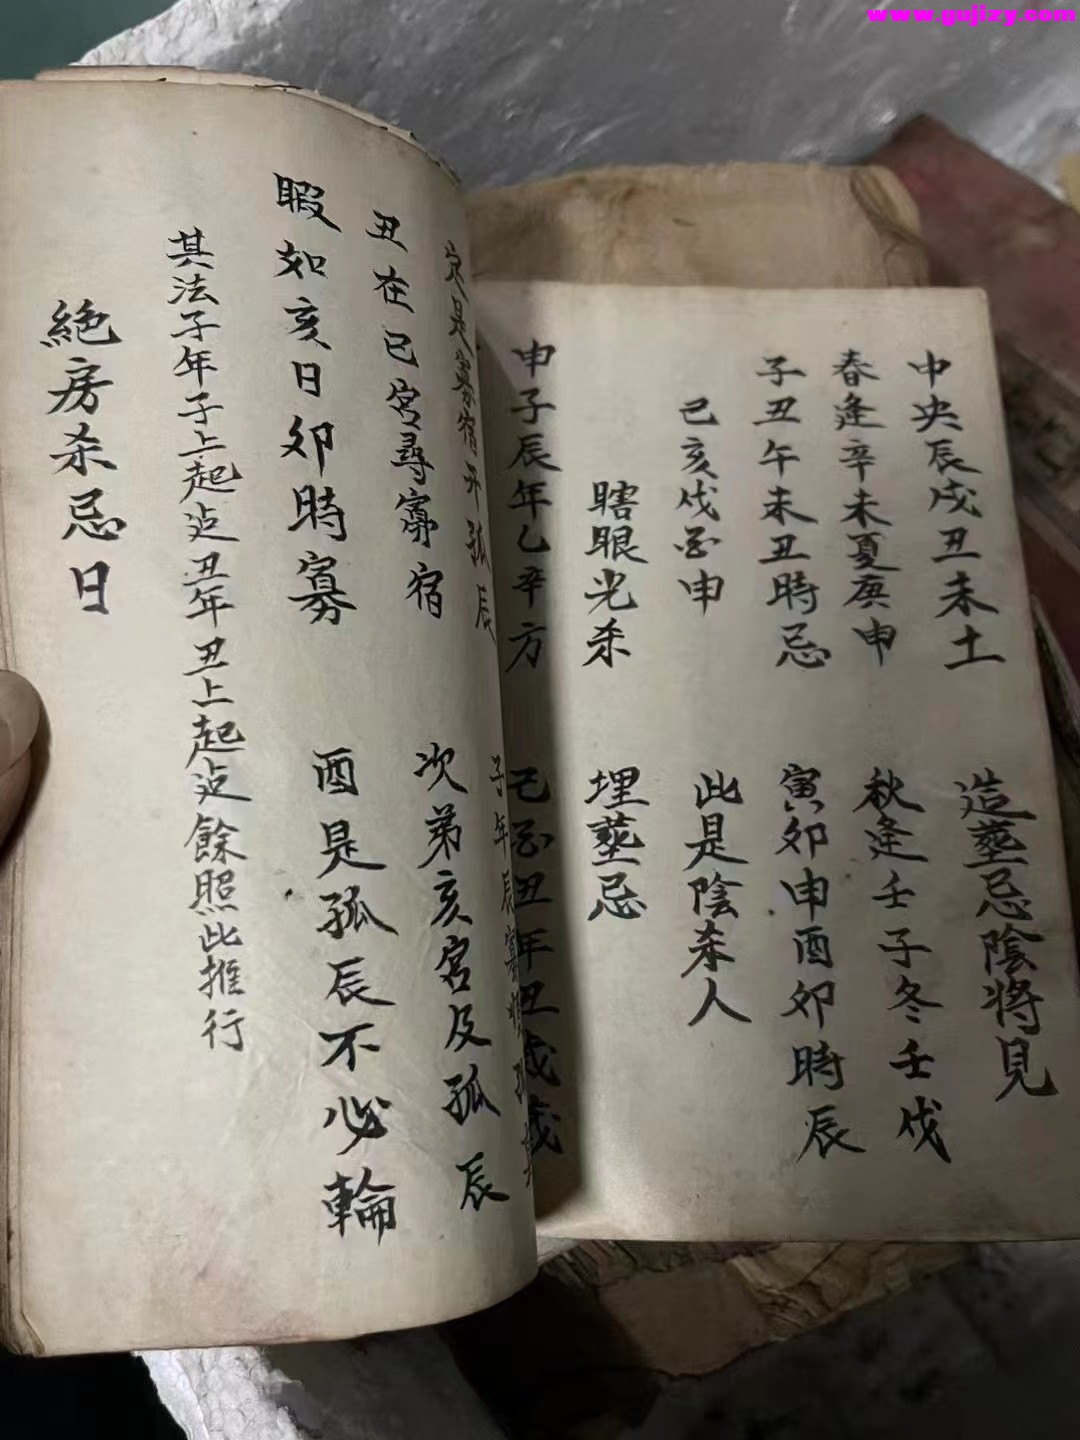 www.gujizy.com
中央辰戌丑未土 造塟忌陰將見
春逢辛未夏庚申 秋逢壬子冬壬戌
子丑午未丑時忌 寅卯申酉卯時辰
己亥戊 申 此是陰杀人
瞎眼光杀 埋塟忌
申子辰年乙辛方 丑年丑
定是寡宿并孤辰 子年辰寡
丑在巳宮尋寡宿 次弟亥宮及孤辰
暇如亥日卯時寡 酉是孤辰不必輪
其法子年子上起迠丑年丑上起迠餘照此推行
絶房杀忌日